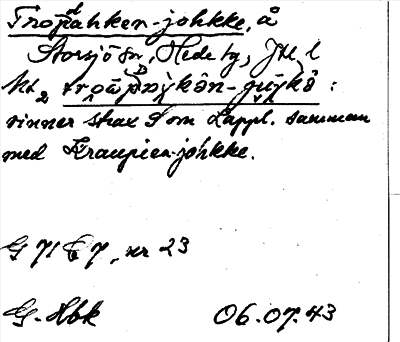 Tropahken-johkke, å
Storsjö sn, Hede tg, Jtl. l
Ht 2
rinner strax S om Lappl. samman
med Kraupien-johkke.
G 71 E 7, nr 23
G. Hbk 06.07.43